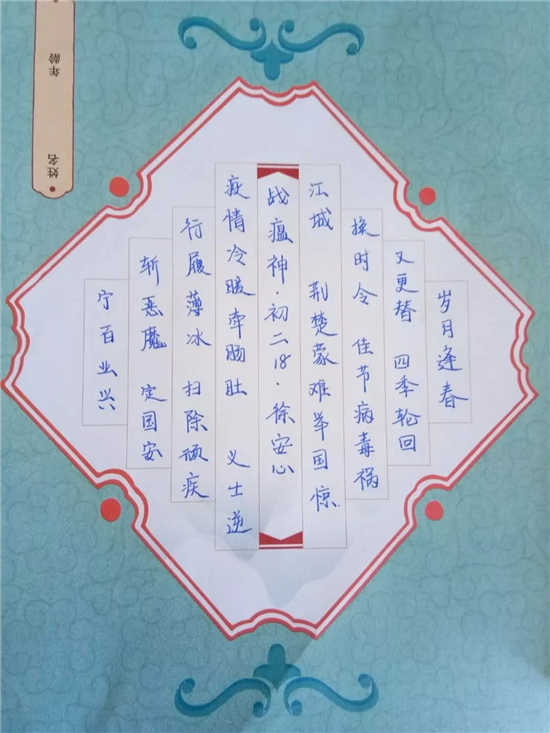 岁月逢春
又更替 四季轮回
换时令 佳节病毒祸
江城 荆楚蒙难举国惊
战瘟神·初二18·徐安心
疫情冷暖牵肠肚 义士逆
行履薄冰 扫除顽疾
斩恶魔 定国安
宁百业兴
姓名
年龄